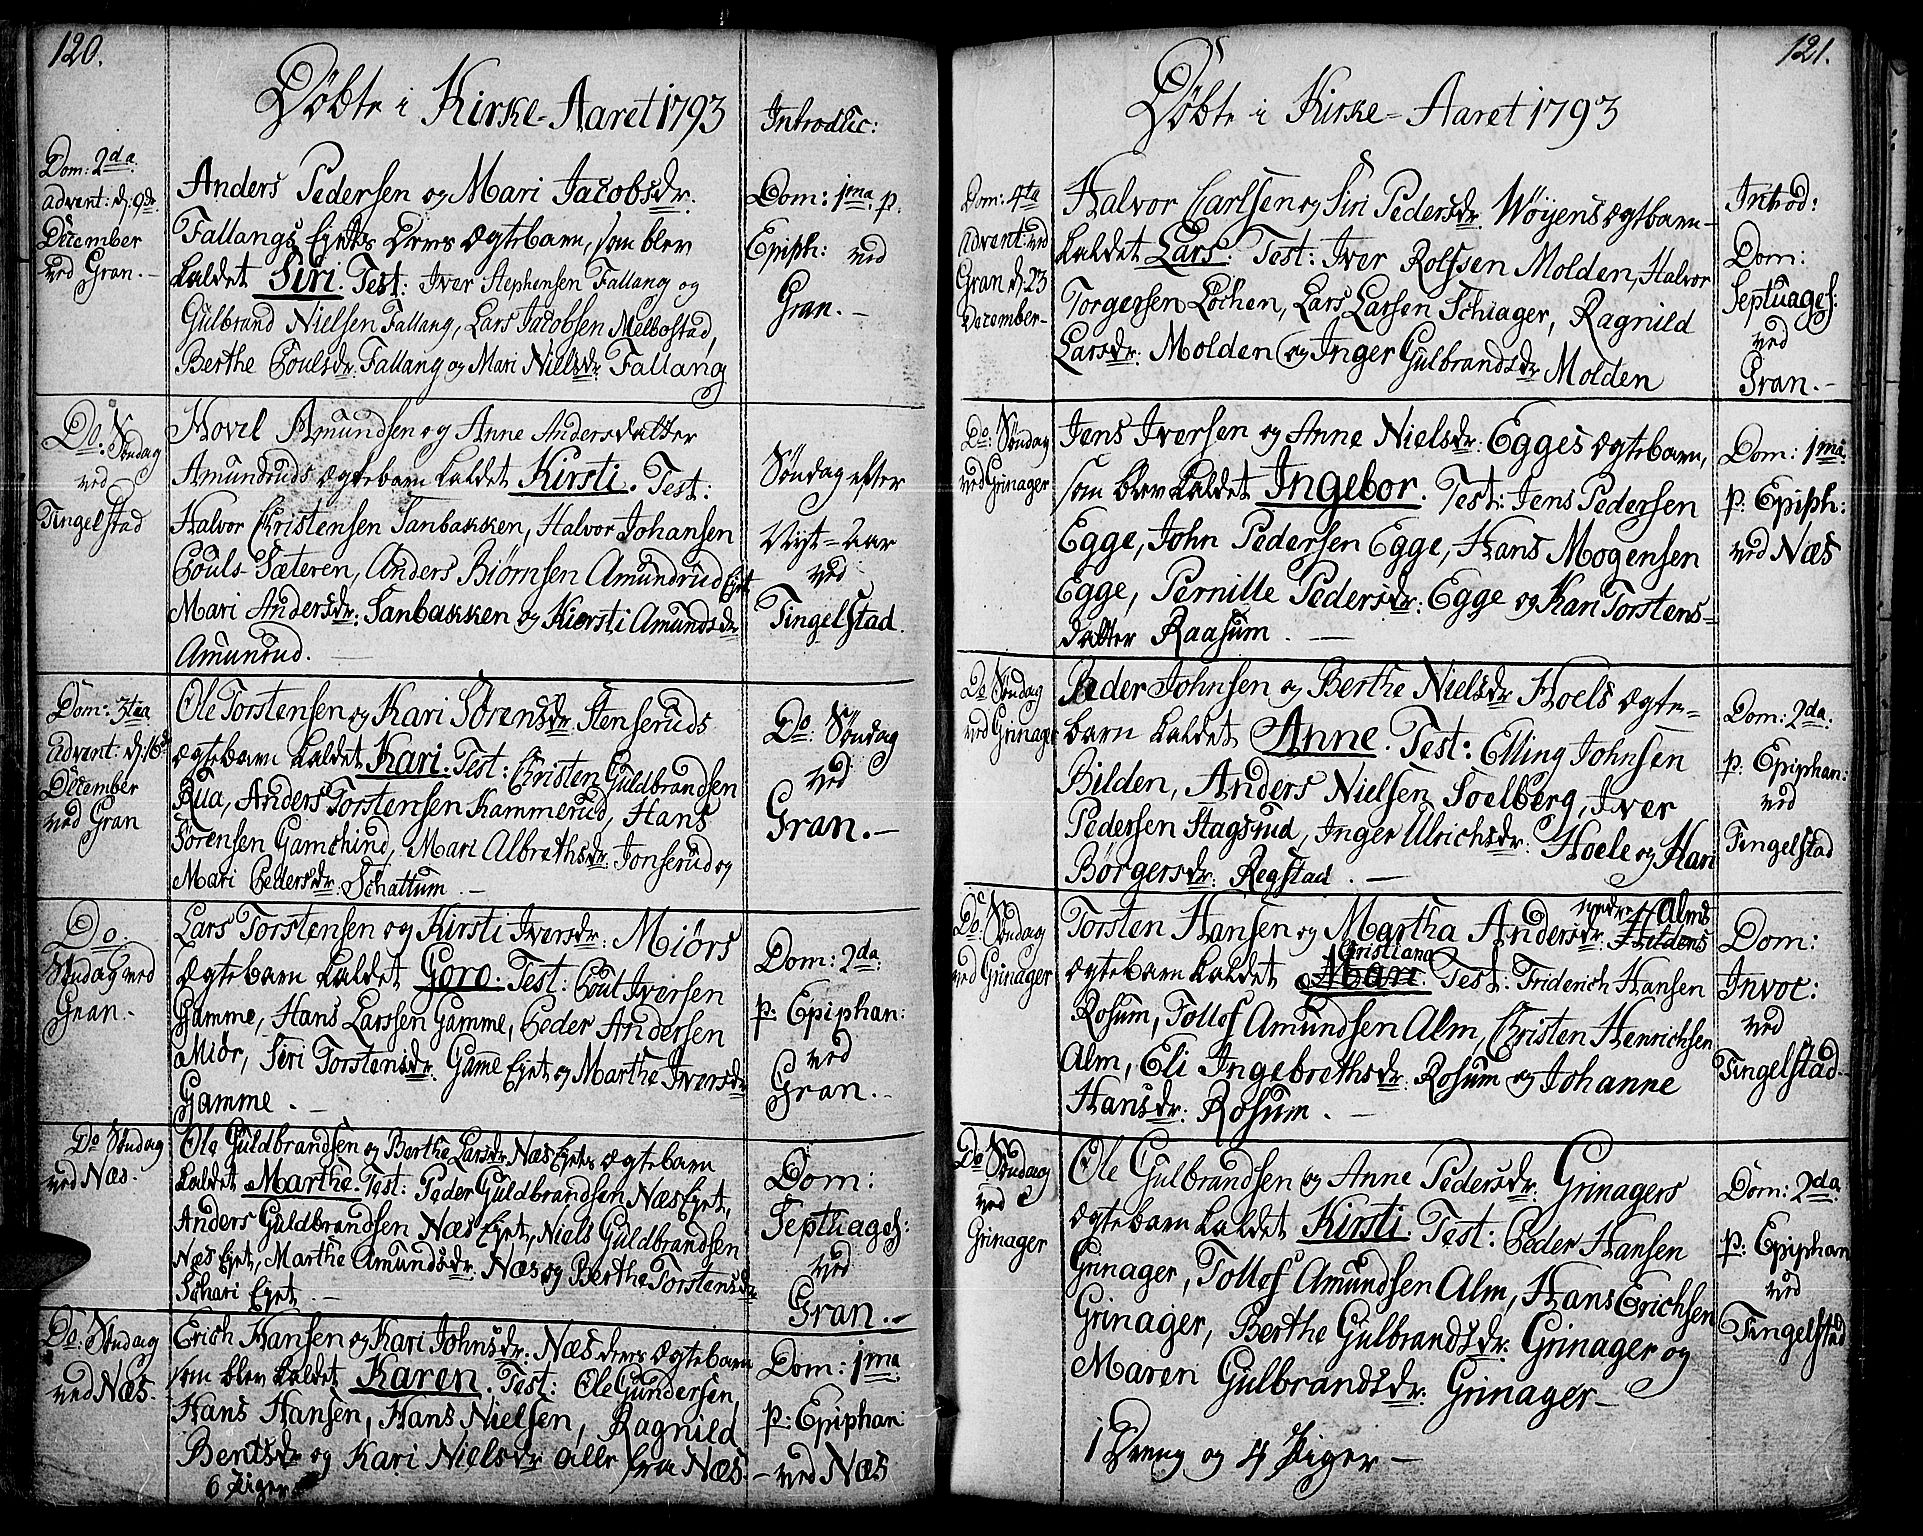 120.
Döbte i Kirke-Aaret 1793
Introduc:
Dom: 2da
Advent: d: 9de
December
ved Gran.-
Anders Pedersen og Mari Jacobsdr.
Fallangs Eyets deres ægtebarn, som blev
kaldet Siri. Test: Iver Stephensen Fallang og
Gulbrand Nielsen Fallang, Lars Jacobsen Melbostad,
Berthe Poulsdr: Fallang og Mari Nielsdr Fallang
Dom: 1ma p.
Epiph: ved
Gran.-
Do. Søndag
ved
Tingelstad
Hovel Amundsen og Anne Andersdatter
Amundruds ægtebarn kaldet Kirsti. Test:
Halvor Christensen Sanbakken, Halvor Johansen
Pouls-Sæteren, Anders Biørnsen Amundrud Eyet
Mari Andersdr: Sanbakken og Kiersti Amundsdr
Amunrud.
Søndag efter
Nyt-Aar
ved
Tingelstad.
Dom: 3tia
Advent: d: 16de
December
ved Gran
Ole Torstensen og Kari Sörensdr. Stenseruds
ægtebarn kaldet Kari. Test: Christen Guldbrandsen
Rua, Anders Torstensen Kammerud, Hans
Sörensen Gamchind, Mari Albrethsdr: Jonserud og
Mari Pedersdr: Schattum.-
Do: Søndag
ved
Gran.-
Do.
Søndag ved
Gran.
Lars Torstensen og Kirsti Iversdr: Miörs
Ægtebarn kaldet Goro. Test: Poul Iversen
Gamme, Hans Larssen Gamme, Peder Andersen
Miör, Siri Torstensdr. Game Eyet og Marthe Iversdr
Gamme.-
Dom: 2da:
p: Epiphan:
ved
Gran.
Do Søndag
ved Næs.
Ole Guldbrandsen og Berthe Larsdr Næs Eyets ægtebarn
kaldet Marthe. Test: Peder Guldbrandsen Næs Eyet,
Anders Guldbrandsen Næs Eyet, Niels Guldbrandsen
Næs Eyet, Marthe Amundsdr: Næs og Berthe Torstensdr
Schari Eyet.-
Dom:
Septuages:
ved
Gran.-
Do: Søndag
ved Næs.
Erich Hansen og Kari Johnsdr: Næs deres Ægtebarn
som blev kaldet Karen. Test: Ole Gundersen,
Hans Hansen, Hans Nielsen, Ragnild
Bentsdr og Kari Nielsdr alle fra Næs.-
6 Piger
Dom: 1ma
p: Epiphan:
ved Næs
121.
Döbte i Kirke-Aaret 1793
Dom: 4ta
Advent: ved
Gran d: 23
December-
Halvor Carlsen og Siri Pedersdr. Wøyens ægtebarn
kaldet Lars. Test: Iver Rolfsen Molden, Halvor
Torgersen Löchen, Lars Larsen Schiager, Ragnild
Larsdr. Molden og Inger Gulbrandsdr Molden
Introd:
Dom:
Septuages:
ved
Gran.-
Do: Søndag
ved Grinager
Jens Iversen og Anne Nielsdr: Egges ægtebarn,
som blev kaldet Ingebor. Test: Jens Pedersen
Egge, John Pedersen Egge, Hans Mogensen
Egge, Pernille Pedersdr: Egge og Kari Torstens=
datter Raasum.-
Dom: 1ma
p: Epiph:
ved Næs
Do Søndag
ved Grinager
Peder Johnsen og Berthe Nielsdr Hoels ægte=
barn kaldet Anne. Test: Elling Johnsen
Bilden, Anders Nielsen Soelberg, Iver
Pedersen Hagsrud, Inger Ulrichsdr: Hoele og Kari
Börgersdr: Regstad.-
Dom: 2da:
p: Epiphan:
ved
Tingelstad
Do: Søndag
ved Grinager
Torsten Hansen og Martha Andersdr: Hildens
nedre Alms
ægtebarn kaldet Mari. Test: Friderich Hansen
Cristiana
Rosum, Tollof Amundsen Alm, Christen Henrichsen
Alm, Eli Ingebrethsdr: Rosum og Johanne
Hansdr: Rosum.-
Dom:
Invoc:
ved
Tingelstad.
Do Søndag
ved
Grinager
Ole Gulbrandsen og Anne Pedersdr: Grinagers
ægtebarn kaldet Kirsti. Test: Peder Hansen
Grinager, Tollof Amundsen Alm, Hans Erichsen
Grinager, Berthe Gulbrandsdr: Grinager og
Maren Gulbrandsdr: Grinager-
1 Dreng og 4 Piger-
Dom: 2da
p: Epiphan
ved
Tingelstad